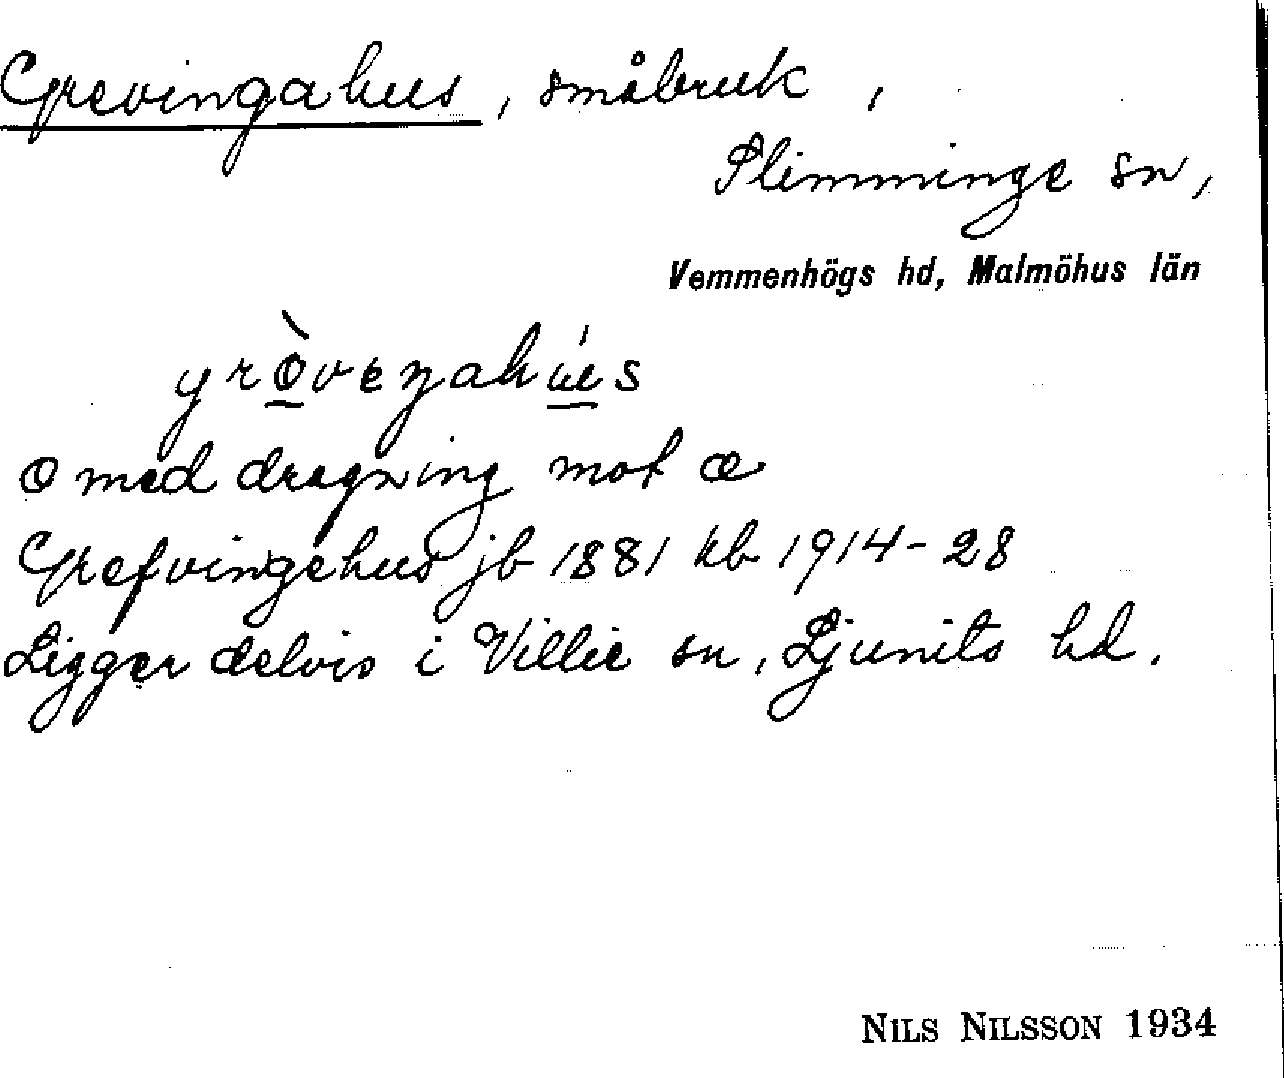 Grevingahus, småbruk,
Slimminge sn,
Vemmenhögs hd, Malmöhus län
grò̱veŋahú̱s
ɵ med dragning mot œ
Grefvingehus jb 1881 kb 1914-28
Ligger delvis i Villie sn, Ljunits hd.
NILS NILSSON 1934